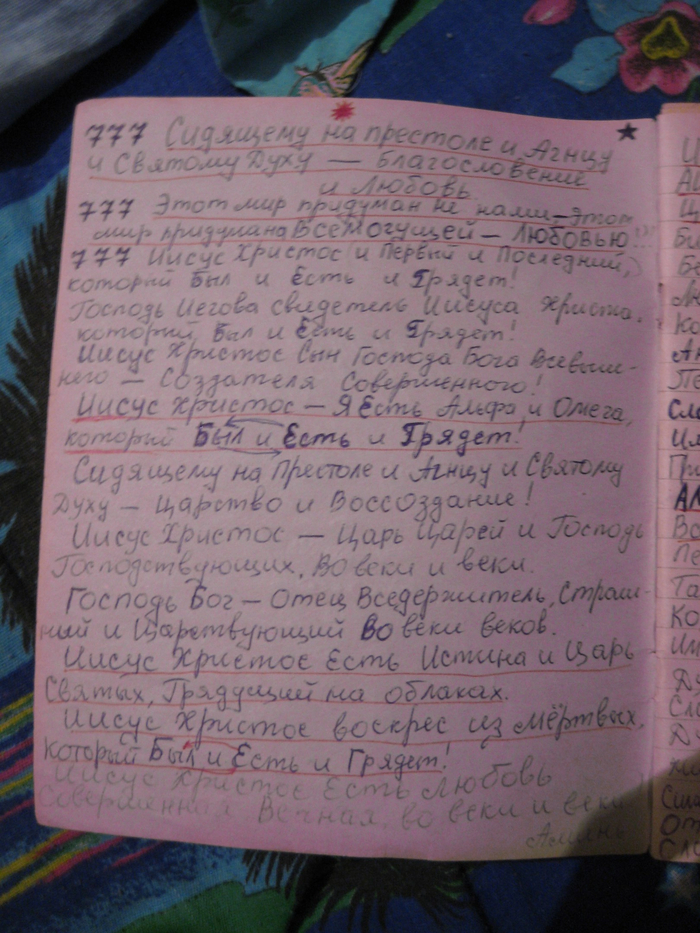 777 Сидящему на престоле и Агнцу
и Святому Духу — Благословение
и Любовь
777 Этот мир придуман не нами – этот
мир придуман Всемогущей – Любовью!!!
777 Иисус Христос и Первый и Последний,
который Был и Есть и Грядет!
Господь Иегова свидетель Иисуса Христа,
который Был и Есть и Грядет!
Иисус Христос Сын Господа Бога Всевыш-
него — Создателя Совершенного!
Иисус Христос – Я Есть Альфа и Омега,
который Был и Есть и Грядет!
Сидящему на Престоле и Агнцу и Святому
Духу – Царство и Воссоздание!
Иисус Христос – Царь Царей и Господь
Господствующих, Во веки и веки.
Господь Бог – Отец Вседержитель, Страш-
ный и Царствующий Во веки веков.
Иисус Христос Есть Истина и Царь
Святых, Грядущий на облаках.
Иисус Христос воскрес из мёртвых,
который Был и Есть и Грядет!
Иисус Христос Есть Любовь
Совершенная Вечная во веки и веки
Аминь